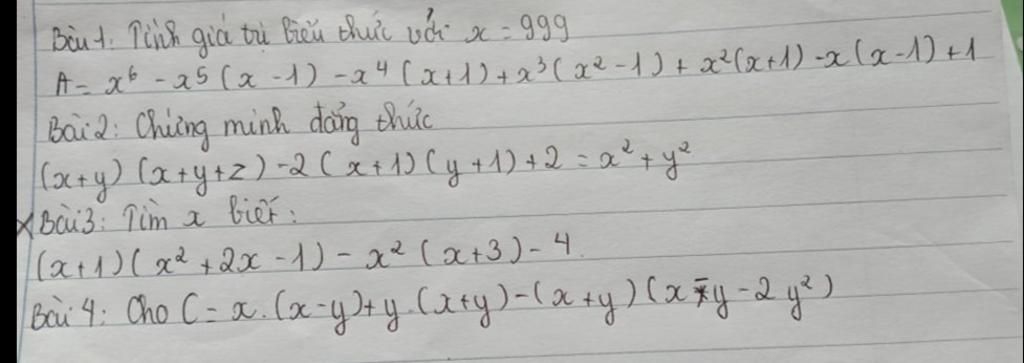 Bài 1. Tính giá trị biểu thức với x = 999
A = x⁶ - x⁵ (x - 1) - x⁴ (x + 1) + x³ (x² - 1) + x² (x + 1) - x (x - 1) + 1
Bài 2: Chứng minh đẳng thức
(x+y) (x+y+z) - 2 (x+1) (y+1) + 2 = x² + y²
x Bài 3: Tìm x biết:
(x+1) (x² + 2x - 1) - x² (x + 3) - 4.
Bài 4: Cho C = x. (x-y) + y. (x+y) - (x+y) (x - y - 2y²)